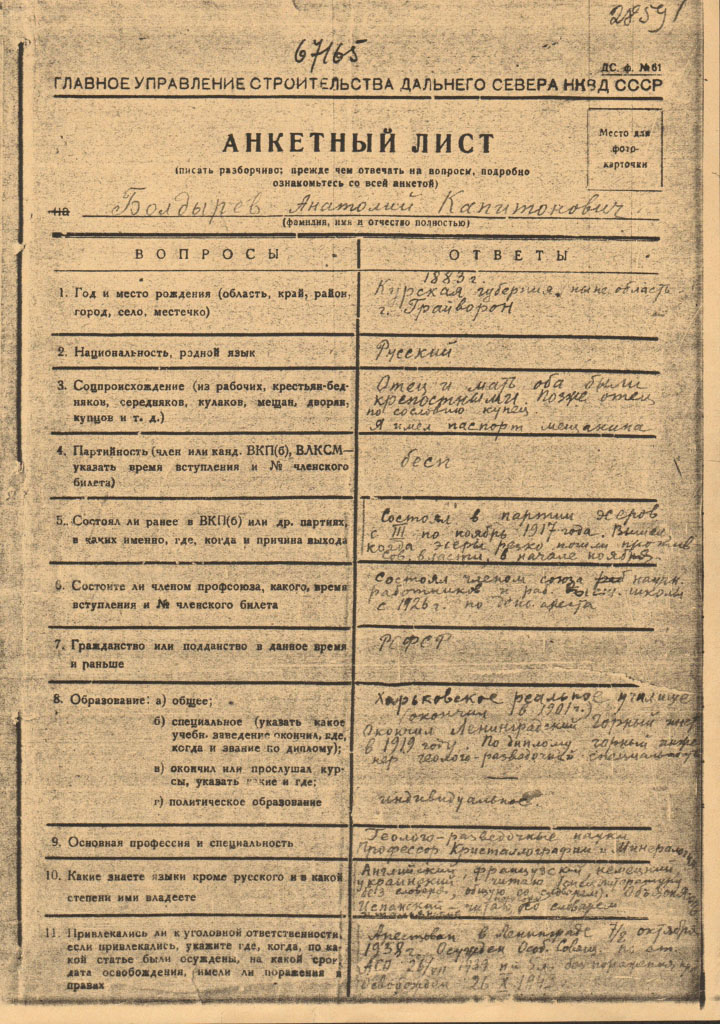 28591
67165
ДС. ф. №61
ГЛАВНОЕ УПРАВЛЕНИЕ СТРОИТЕЛЬСТВА ДАЛЬНЕГО СЕВЕРА НКВД СССР
АНКЕТНЫЙ ЛИСТ
Место для
фото-
карточки
(писать разборчиво; прежде чем отвечать на вопросы, подробно
ознакомьтесь со всей анкетой)
на Болдырев Анатолий Капитонович
(фамилия, имя и отчество полностью)
ВОПРОСЫ
ОТВЕТЫ
1. Год и место рождения (область, край, район,
город, село, местечко)
1883 г.
Курская губерния, ныне область
г. Грайворон
2. Национальность, родной язык
Русский
3. Соцпроисхождение (из рабочих, крестьян-бед-
няков, середняков, кулаков, мещан, дворян,
купцов и т. д.)
Отец и мать оба были
крепостными. Позже отец
по сословию купец
Я имел паспорт мещанина
4. Партийность (член или канд. ВКП(б), ВЛКСМ—
указать время вступления и № членского
билета)
бесп
5. Состоял ли ранее в ВКП(б) или др. партиях,
в каких именно, где, когда и причина выхода
Состоял в партии эсеров
с III по ноябрь 1917 года. Вышел
когда эсеры резко пошли против
Сов. власти, в начале ноября
6. Состоите ли членом профсоюза, какого, время
вступления и № членского билета
Состоял членом союза научн.
работников и раб. высш. школы
с 1926 г. по день ареста
7. Гражданство или подданство в данное время
и раньше
РСФСР
8. Образование: а) общее;
б) специальное (указать какое
учебн. заведение окончил, где,
когда и звание по диплому);
в) окончил или прослушал кур-
сы, указать какие и где;
г) политическое образование
Харьковское реальное училище
окончил (в 1901 г.)
Окончил Ленинградский Горный инст
в 1919 году. По диплому горный инже-
нер геолого-разведочной специальности
—
индивидуальное.
9. Основная профессия и специальность
Геолого-разведочные науки
Профессор Кристаллографии и Минералогии
10. Какие знаете языки кроме русского и в какой
степени ими владеете
Английский, французский, немецкий,
украинский читаю (спец. литературу
без словаря, общую со словарем).
Испанский — читаю со словарем
11. Привлекались ли к уголовной ответственности,
если привлекались, укажите где, когда, по ка-
кой статье были осуждены, на какой срок,
дата освобождения, имели ли поражения в
правах
Арестован в Ленинграде 7/8 октября
1938 г. Осужден Особ. Совещ. по ст.
АСА 1939 на 5 л. без поражения
Освобожден 26 X